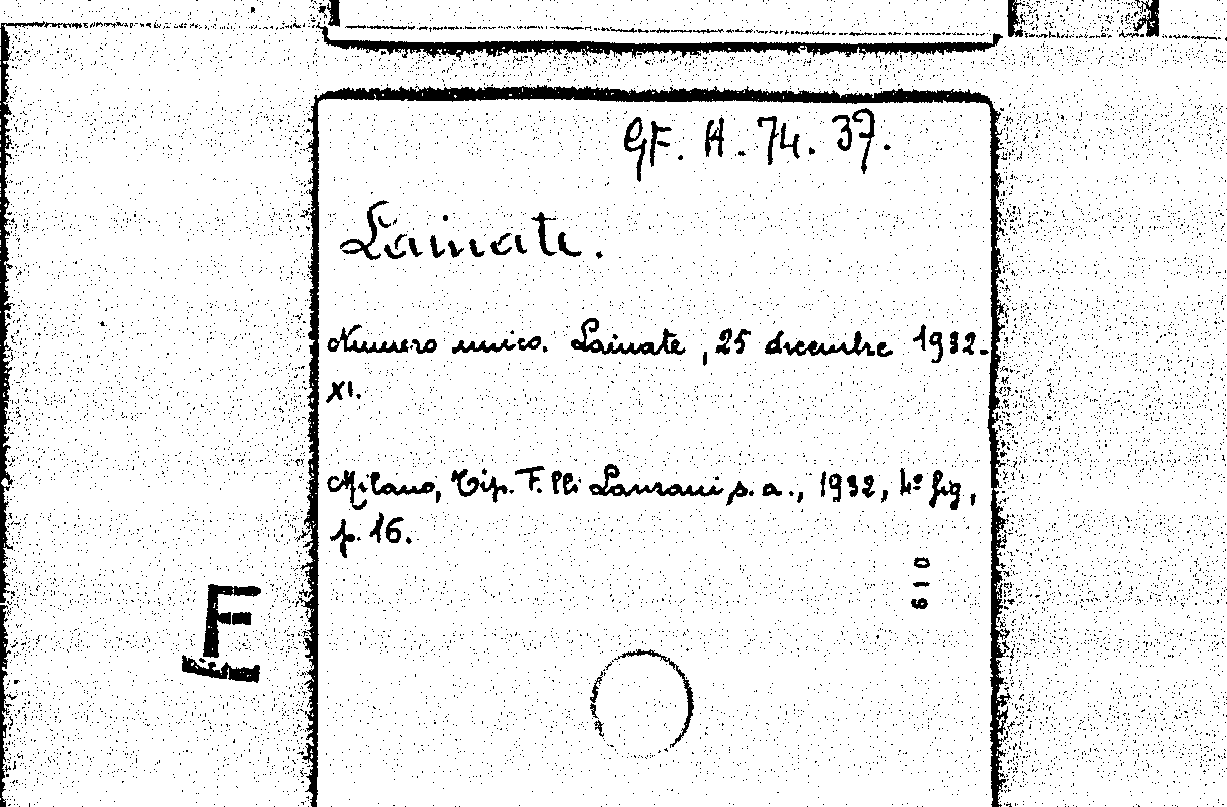 GF. H. 74. 37.
Lainate.
Numero unico. Lainate, 25 dicembre 1932-
XI.
Milano, Tip. F.lli Lanzani s. a., 1932, 4º fig,
p. 16.
610
F